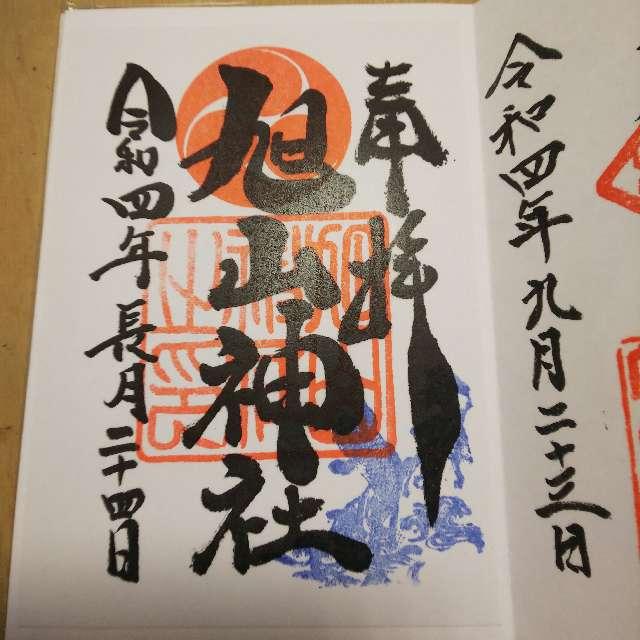 令和四年九月二十三日
奉拝
旭山神社
令和四年長月二十四日